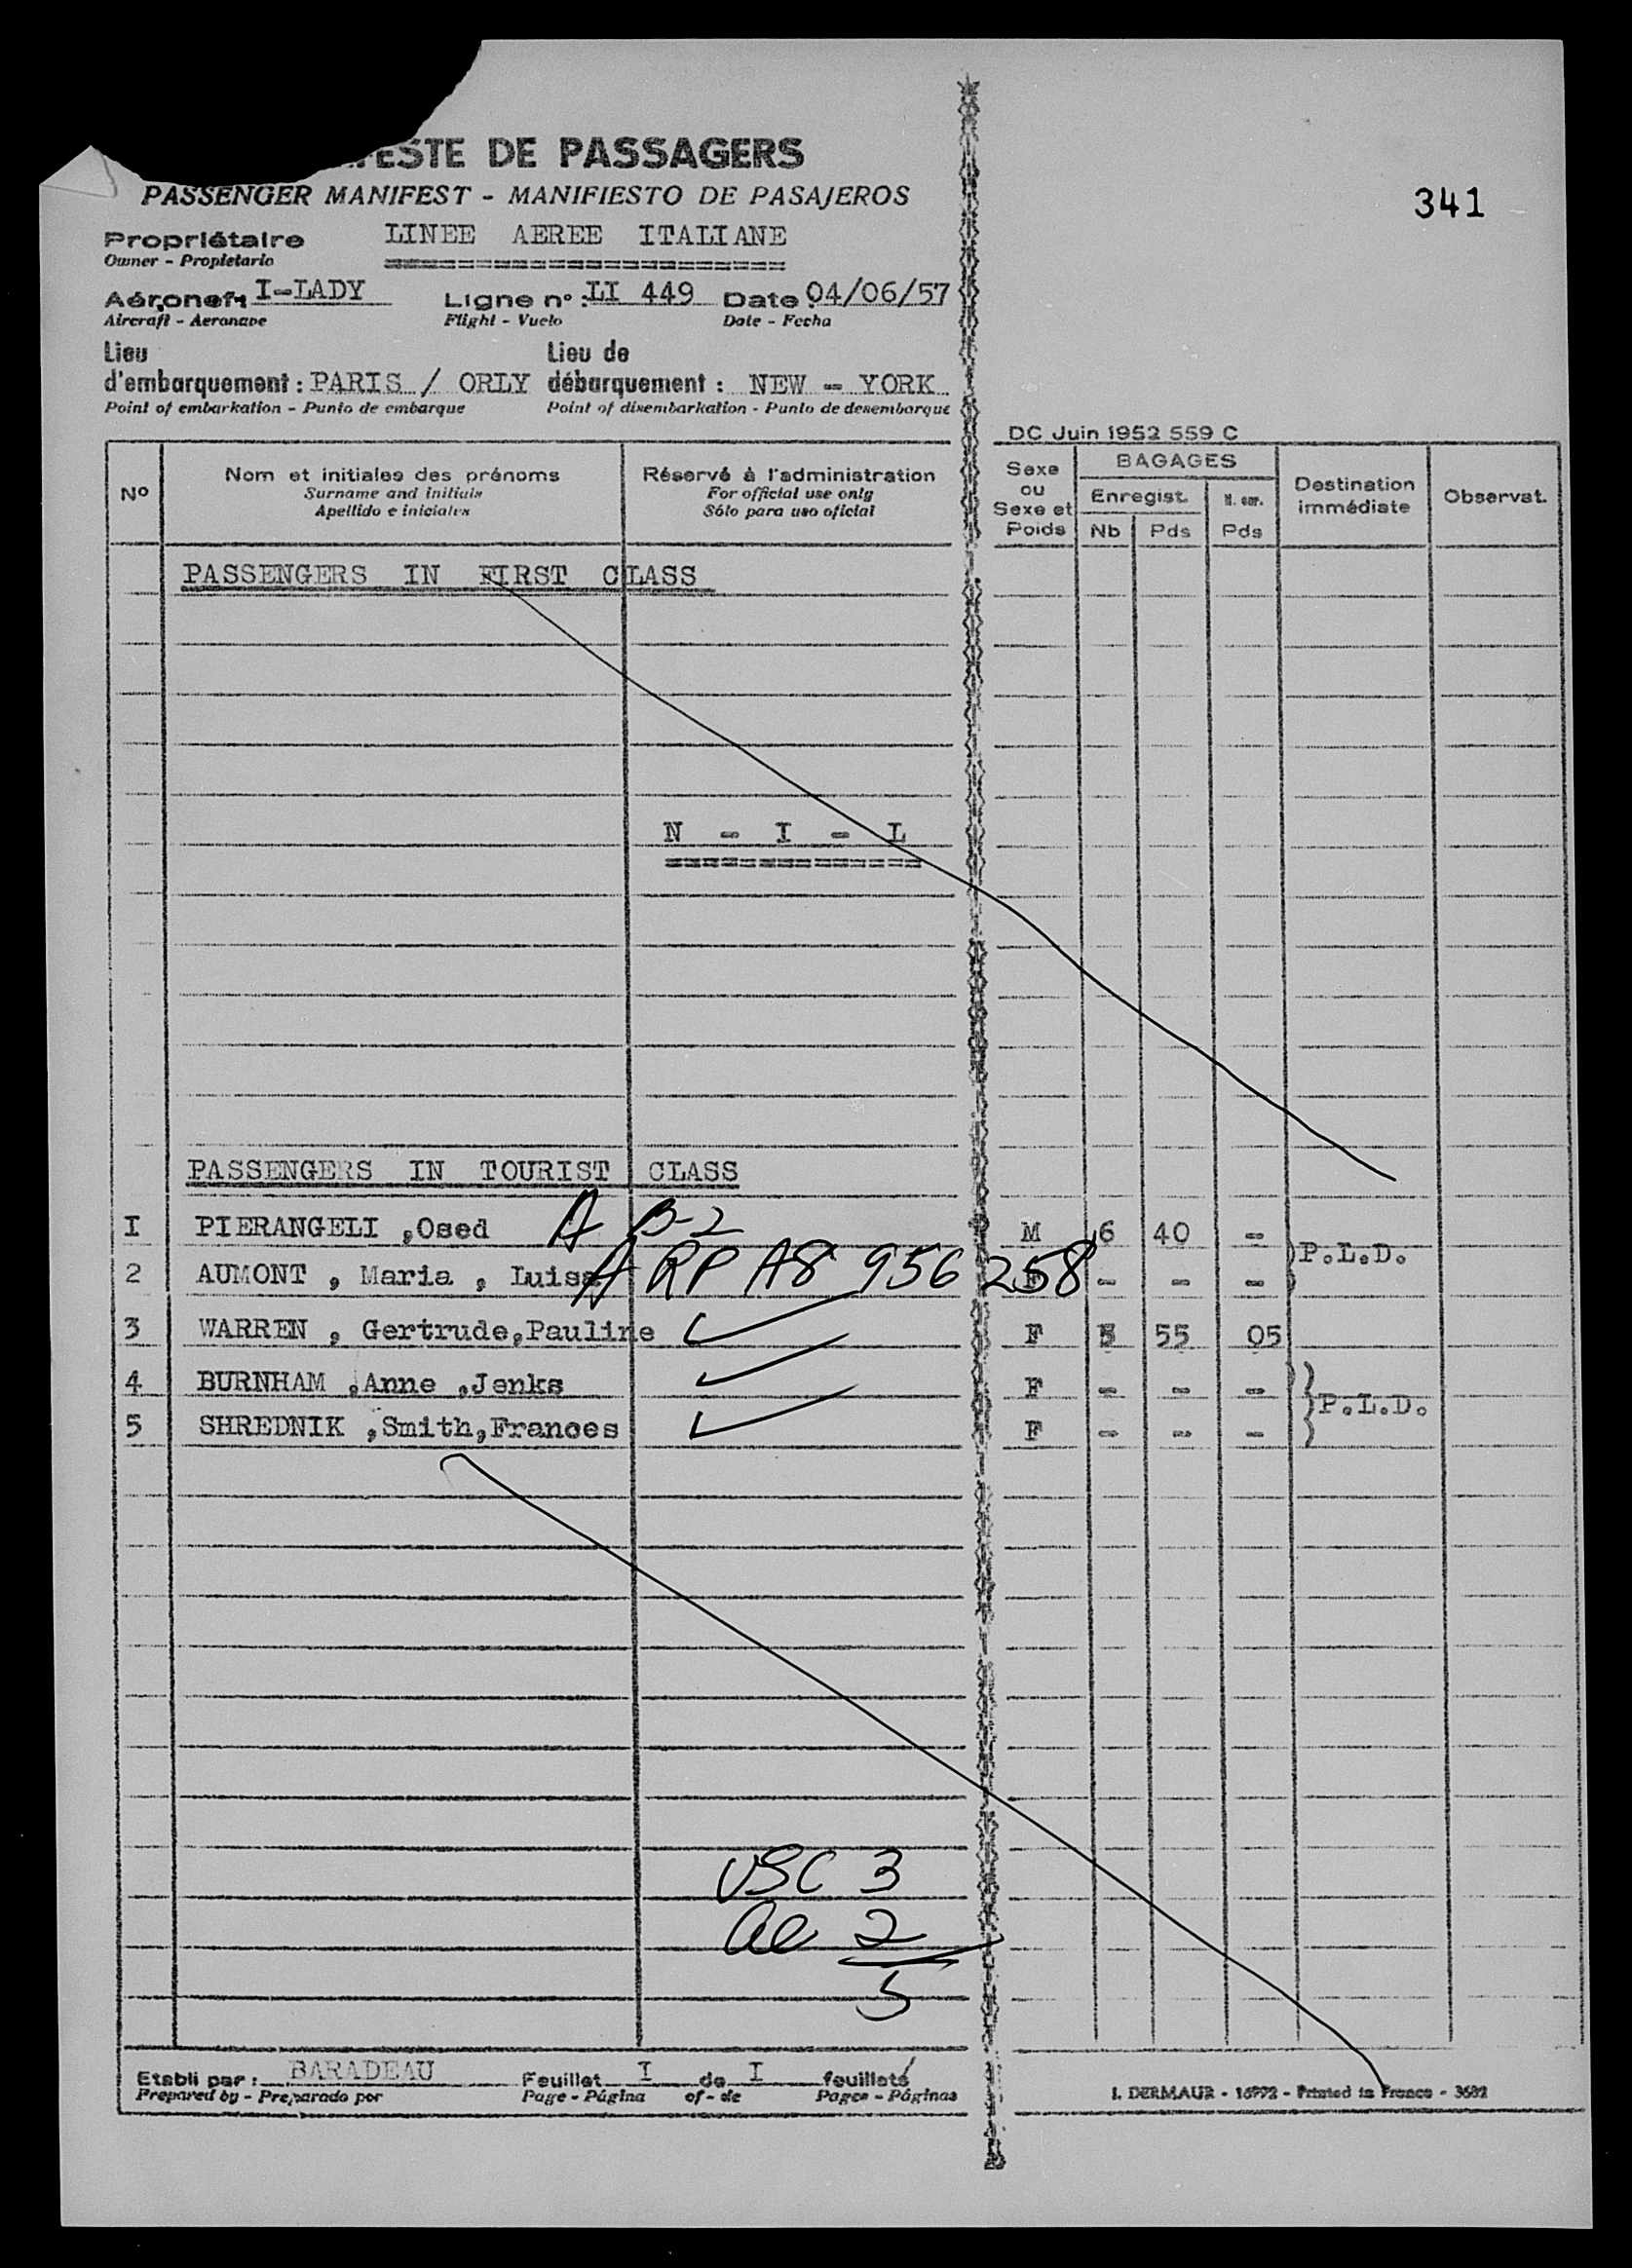 ESTE DE PASSAGERS
PASSENGER MANIFEST - MANIFIESTO DE PASAJEROS
341
Propriétaire LINEE AEREE ITALIANE
Owner - Propietario
Aéronef: I-LADY Ligne n° : LI 449 Date 04/06/57
Aircraft - Aeronave Flight - Vuelo Date - Fecha
Lieu Lieu de
d'embarquement : PARIS / ORLY débarquement : NEW - YORK
Point of embarkation - Punto de embarque Point of disembarkation - Punto de desembarque
DC Juin 1952 559 C
N° Nom et initiales des prénoms Réservé à l'administration Sexe ou Sexe et Poids BAGAGES Destination immédiate Observat.
Surname and initials For official use only Enregist. N. enr.
Apellido e iniciales Sólo para uso oficial Nb Pds Pds
PASSENGERS IN FIRST CLASS
N - I - L
PASSENGERS IN TOURIST CLASS
I PIERANGELI ,Osed A B-2 M 6 40 - )P.L.D.
2 AUMONT , Maria , Luisa A RP A8 956 258 F - - - )
3 WARREN , Gertrude,Pauline F 5 55 05
4 BURNHAM ,Anne ,Jenks F - - - )) P.L.D.
5 SHREDNIK ,Smith,Frances F - - - )
USC 3
Ae 2
5
Etabli par : BARADEAU Feuillet I de I feuillets
Prepared by - Preparado por Page - Página of - de Pages - Páginas
I. DERMAUR - 16992 - Printed in France - 3682